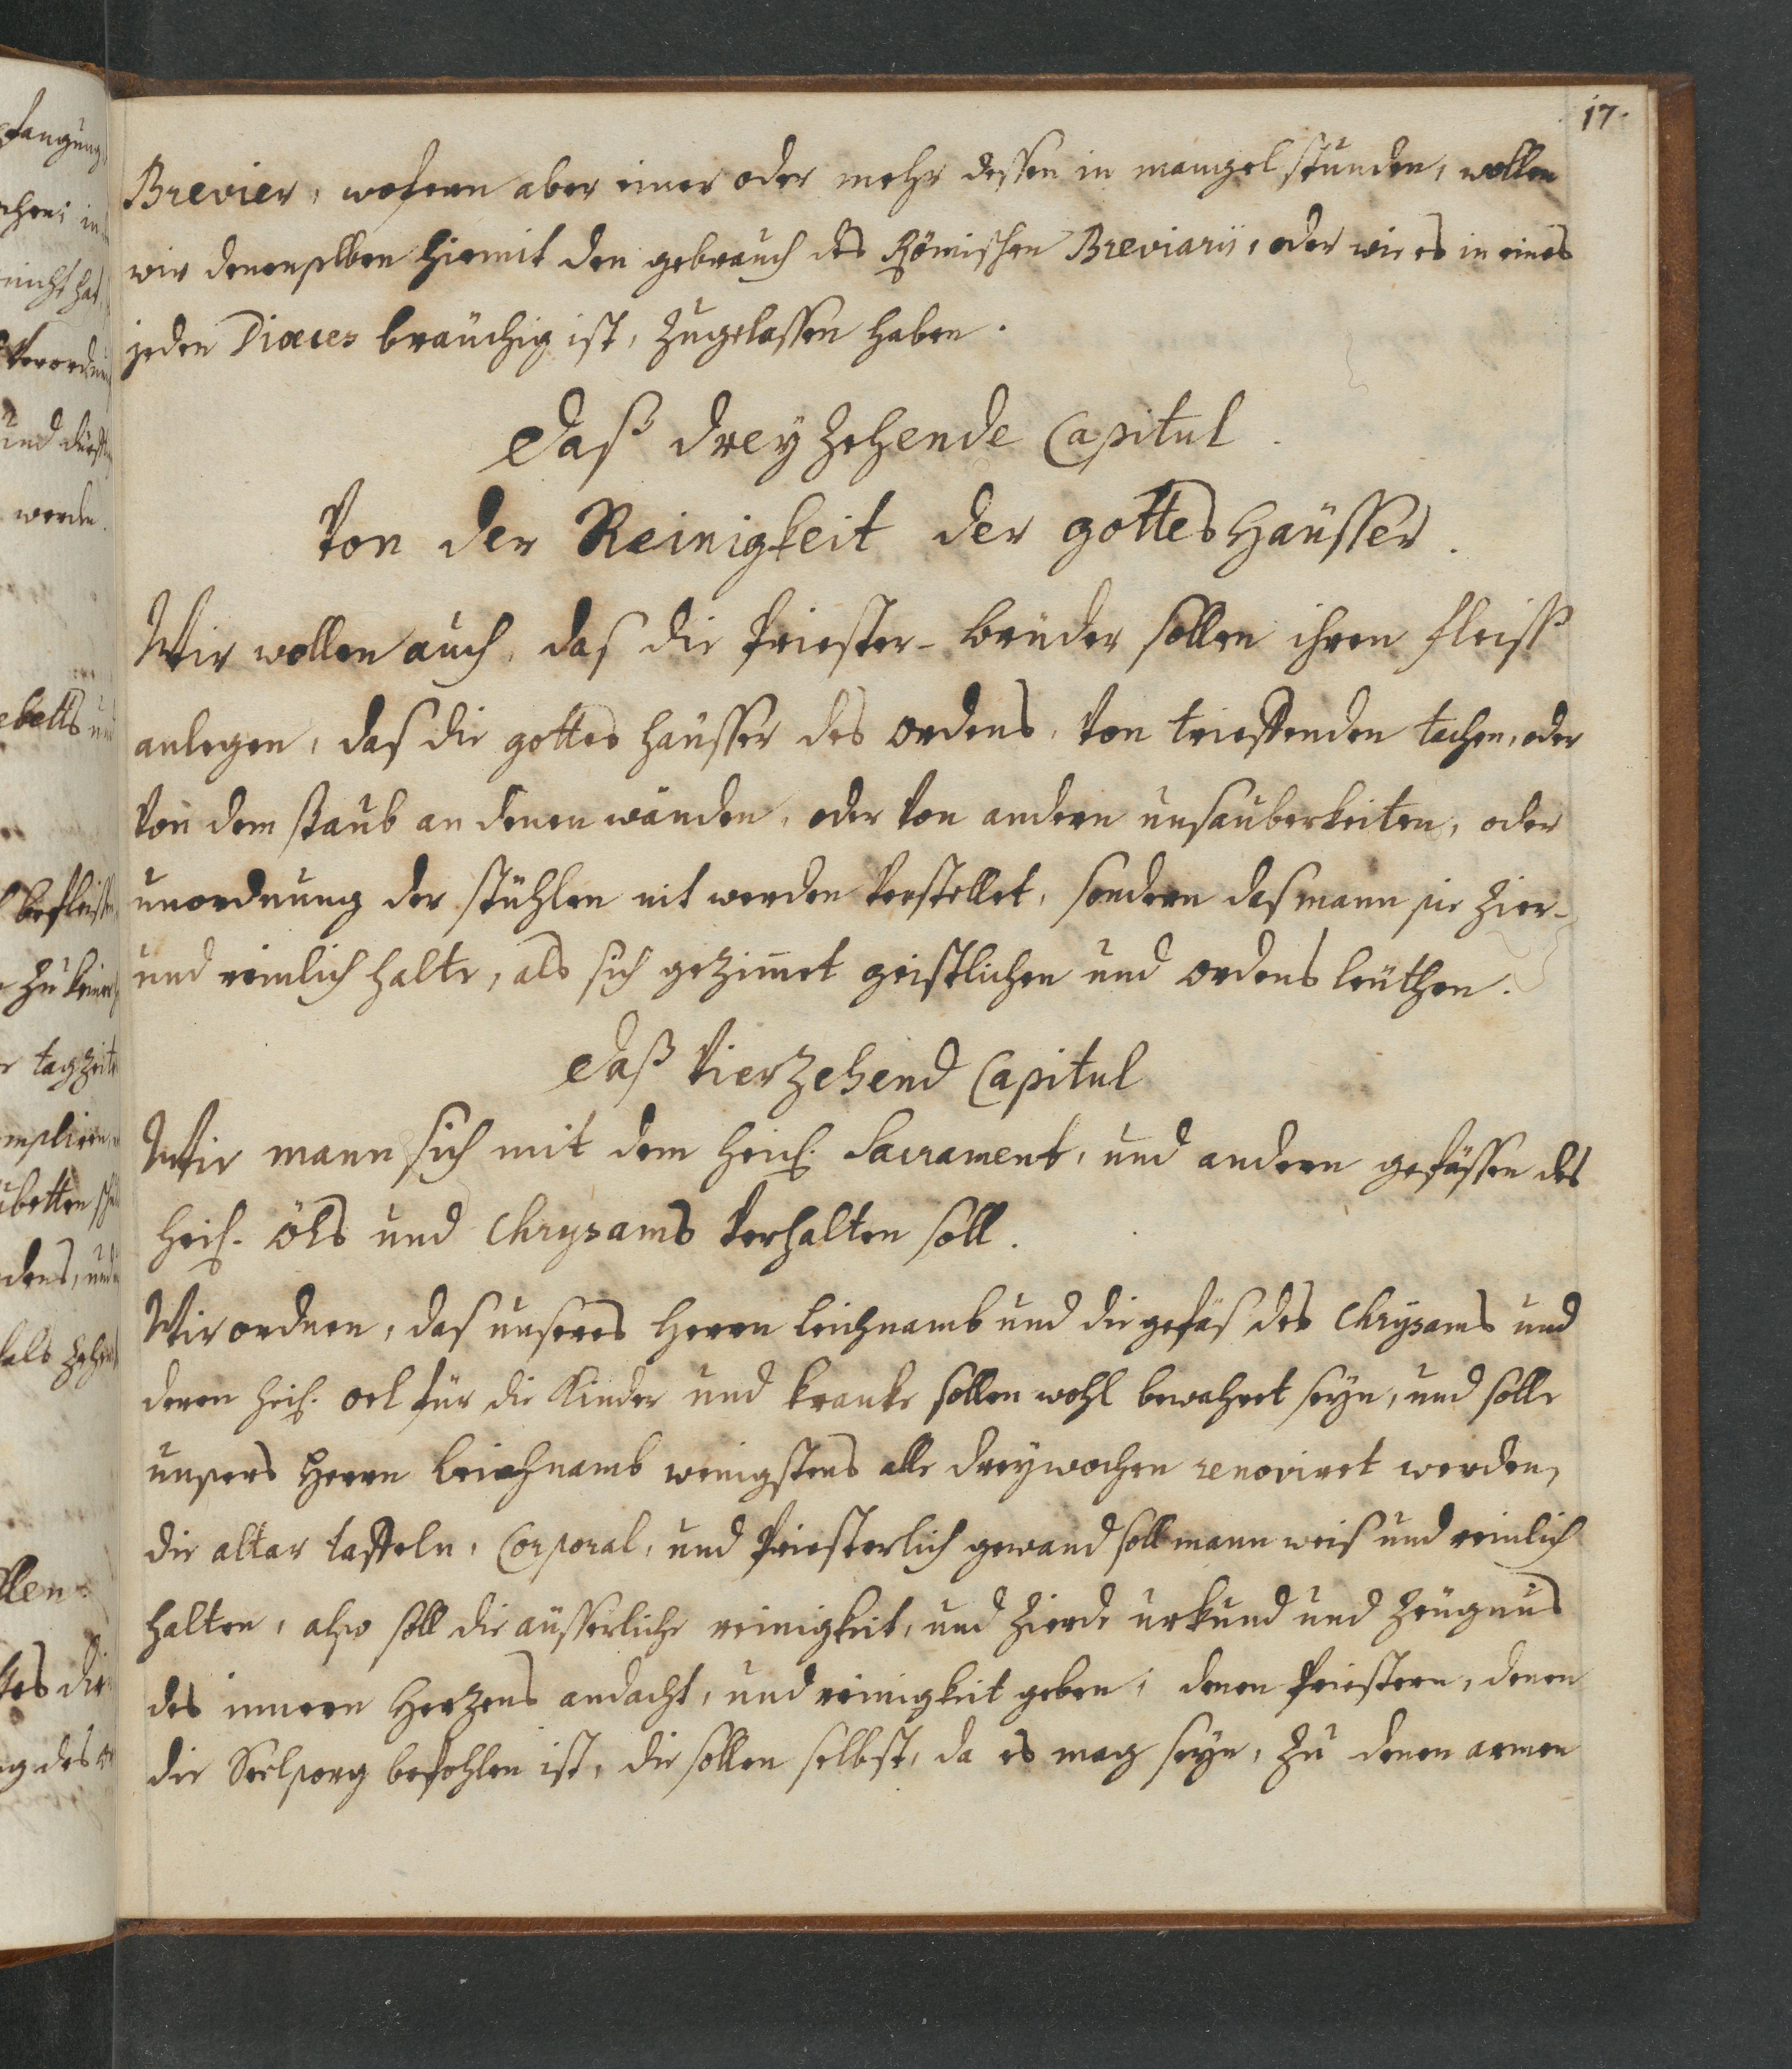 17.
Brevier, wofern aber einer oder mehr dessen in mangel stunden, wollen
wir denenselben hiemit den gebrauch des Römischen Breviarii, oder wie es in eines
jeden Diœces bräuchig ist, zugelassen haben.
Daß dreyzehende Capitul.
Von der Reinigkeit der gottes Häusser.
Wir wollen auch, das die Priester-brüder sollen ihren fleiss
anlegen, das die gottes häusser des ordens, von trieffenden tachen, oder
von dem staub an denen wänden, oder von andern unsauberkeiten, oder
unordnung der stühlen nit werden verstellet, sondern das mann sie zier-
und reinlich halte, als sich gezimet geistlichen und ordens leüthen.
Daß Vierzehend Capitul
Wie mann sich mit dem heil. Sacrament, und andern gefässen des
heil. öhls und Chrysams verhalten soll.
Wir ordnen, das unseres Herrn leichnamb und die gefäs des Chrysams und
deren heil. oel für die Kinder und kranke sollen wohl bewahret seyn, und solle
unsers Herrn leichnamb wenigstens alle drey wochen renoviret werden,
die altar taffeln, Corporal, und Priesterlich gewand soll mann weis und reinlich
halten, also soll die äusserliche reinigkeit, und zierde urkund und zeügnus
des innern Herzens andacht, und reinigkeit geben; denen Priestern, denen
die Seelsorg befohlen ist, die sollen selbst, da es mag seyn, zu denen armen